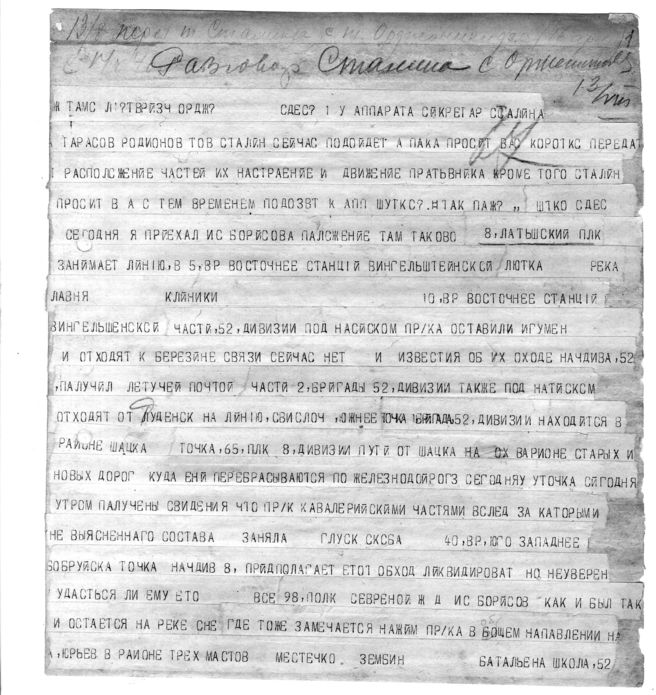 13/8 перег т Сталина с т. Орджоникидзе
1
Разговор Сталина с Орженик
13/VIII
Ж ТАМС Л!?ТВРИЗЧ ОРДЖ? СДЕС? 1 У АППАРАТА СИКРЕГАР СТАЛИНА
ТАРАСОВ РОДИОНОВ ТОВ СТАЛИН СЕЙЧАС ПОДОЙДЕТ А ПАКА ПРОСИТ ВАС КОРОТКС ПЕРЕДАТ
РАСПОЛСЖЕНИЕ ЧАСТЕЙ ИХ НАСТРАЕНИЕ И ДВИЖЕНИЕ ПРАТЬВНИКА КРОМЕ ТОГО СТАЛИН
ПРОСИТ В А С ТЕМ ВРЕМЕНЕМ ПОДОЗВТ К АПП ШУТКС?.#ТАК ПАЖ? „ ШТКО СДЕС
СЕГОДНЯ Я ПРИЕХАЛ ИС БОРИСОВА ПАЛСЖЕНИЕ ТАМ ТАКОВО 8,ЛАТЫШСКИЙ ПЛК
ЗАНИМАЕТ ЛИНІЮ,В 5,ВР ВОСТОЧНЕЕ СТАНЦІЙ ВИНГЕЛЬШТЕЙНСКСЙ ЛЮТКА РЕКА
ЛАВНЯ КЛИНИКИ 10,ВР ВОСТОЧНЕЕ СТАНЦІЙ
ВИНГЕЛЬШЕНСКСЙ ЧАСТИ,52,ДИВИЗИИ ПОД НАСИСКОМ ПР/КА ОСТАВИЛИ ИГУМЕН
И ОТХОДЯТ К БЕРЕЗИНЕ СВЯЗИ СЕЙЧАС НЕТ И ИЗВЕСТИЯ ОБ ИХ ОХОДЕ НАЧДИВА,52
,ПАЛУЧИЛ ЛЕТУЧЕЙ ПОЧТОЙ ЧАСТИ 2,БРИГАДЫ 52,ДИВИЗИИ ТАКЖЕ ПОД НАТИСКСМ
ОТХОДЯТ ОТ РУДЕНСК НА ЛИНІЮ,СВИСЛОЧ ,ЮЖНЕЕ ТОЧКА 1БРИГАДА,52,ДИВИЗИИ НАХОДИТСЯ В
РАЙОНЕ ШАЦКА ТОЧКА,65,ПЛК 8,ДИВИЗИИ ПУТЙ ОТ ШАЦКА НА ОХ ВАРИОНЕ СТАРЫХ И
НОВЫХ ДОРОГ КУДА ЕНИ ПЕРЕБРАСЫВАЮТСЯ ПО ЖЕЛЕЗНОДОЙРОГЗ СЕГОДНЯУ УТОЧКА СИГОДНЯ
УТРОМ ПАЛУЧЕНЫ СВИДЕНИЯ ЧТО ПР/К КАВАЛЕРИЙСКИМИ ЧАСТЯМИ ВСЛЕД ЗА КАТОРЫМИ
НЕ ВЫЯСНЕННАГО СОСТАВА ЗАНЯЛА ГЛУСК СКСБА 40,ВР,ЮГО ЗАПАДНЕЕ
БОБРУЙСКА ТОЧКА НАЧДИВ 8, ПРИДПОЛАГАЕТ ЕТОТ ОБХОД ЛИКВИДИРОВАТ НО НЕУВЕРЕН
УДАСТЬСЯ ЛИ ЕМУ ЕТО ВСЕ 98,ПОЛК СЕВРЕНОЙ Ж Д ИС БОРИСОВ КАК И БЫЛ ТАК
И ОСТАЕТСЯ НА РЕКЕ СНЕ ГДЕ ТОЖЕ ЗАМЕЧАЕТСЯ НАЖИМ ПР/КА В ОБЩЕМ НАПАВЛЕНИИ НА
,ЮРЬЕВ В РАЙОНЕ ТРЕХ МАСТОВ МЕСТЕЧКО ЗЕМБИН БАТАЛЬЕНА ШКОЛА,52/